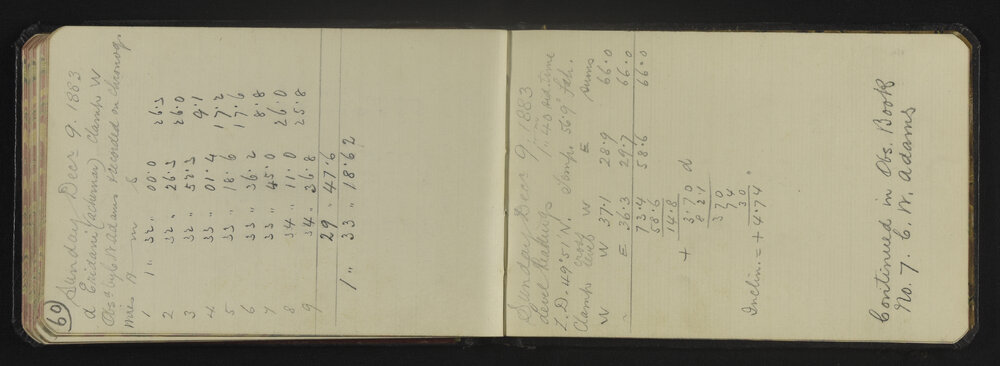 69
Sunday Decr 9. 1883
α Eridani (Achernar) Clamps W
Obsd by C. W. Adams & recorded on Chronog.
Wires H m S
1 1" 32" 00.0 26.3
2 32" 26.3 26.0
3 32" 52.3 9.1
4 33" 01.4 17.2
5 33" 18.6 17.6
6 33" 36.2 8.8
7 33" 45.0 26.0
8 34" 11.0 25.8
9 34" 36.8
29" 47.6
1" 33" 18.62
Sunday Decr 9. 1883
Level Readings 1h.40 sid. time
Z.D. 49°51 N. Temp. 56.9° Fah.
Clamps Cross level W E Sums
W W 37.1 28.9 66.0
" E 36.3 29.7 66.0
73.4 58.6 66.0
58.6
+ 14.8
3.70 d
82.1
370
74
30
Inclin. = + 4.74"
Continued in Obs. Book
No. 7. C. W. Adams